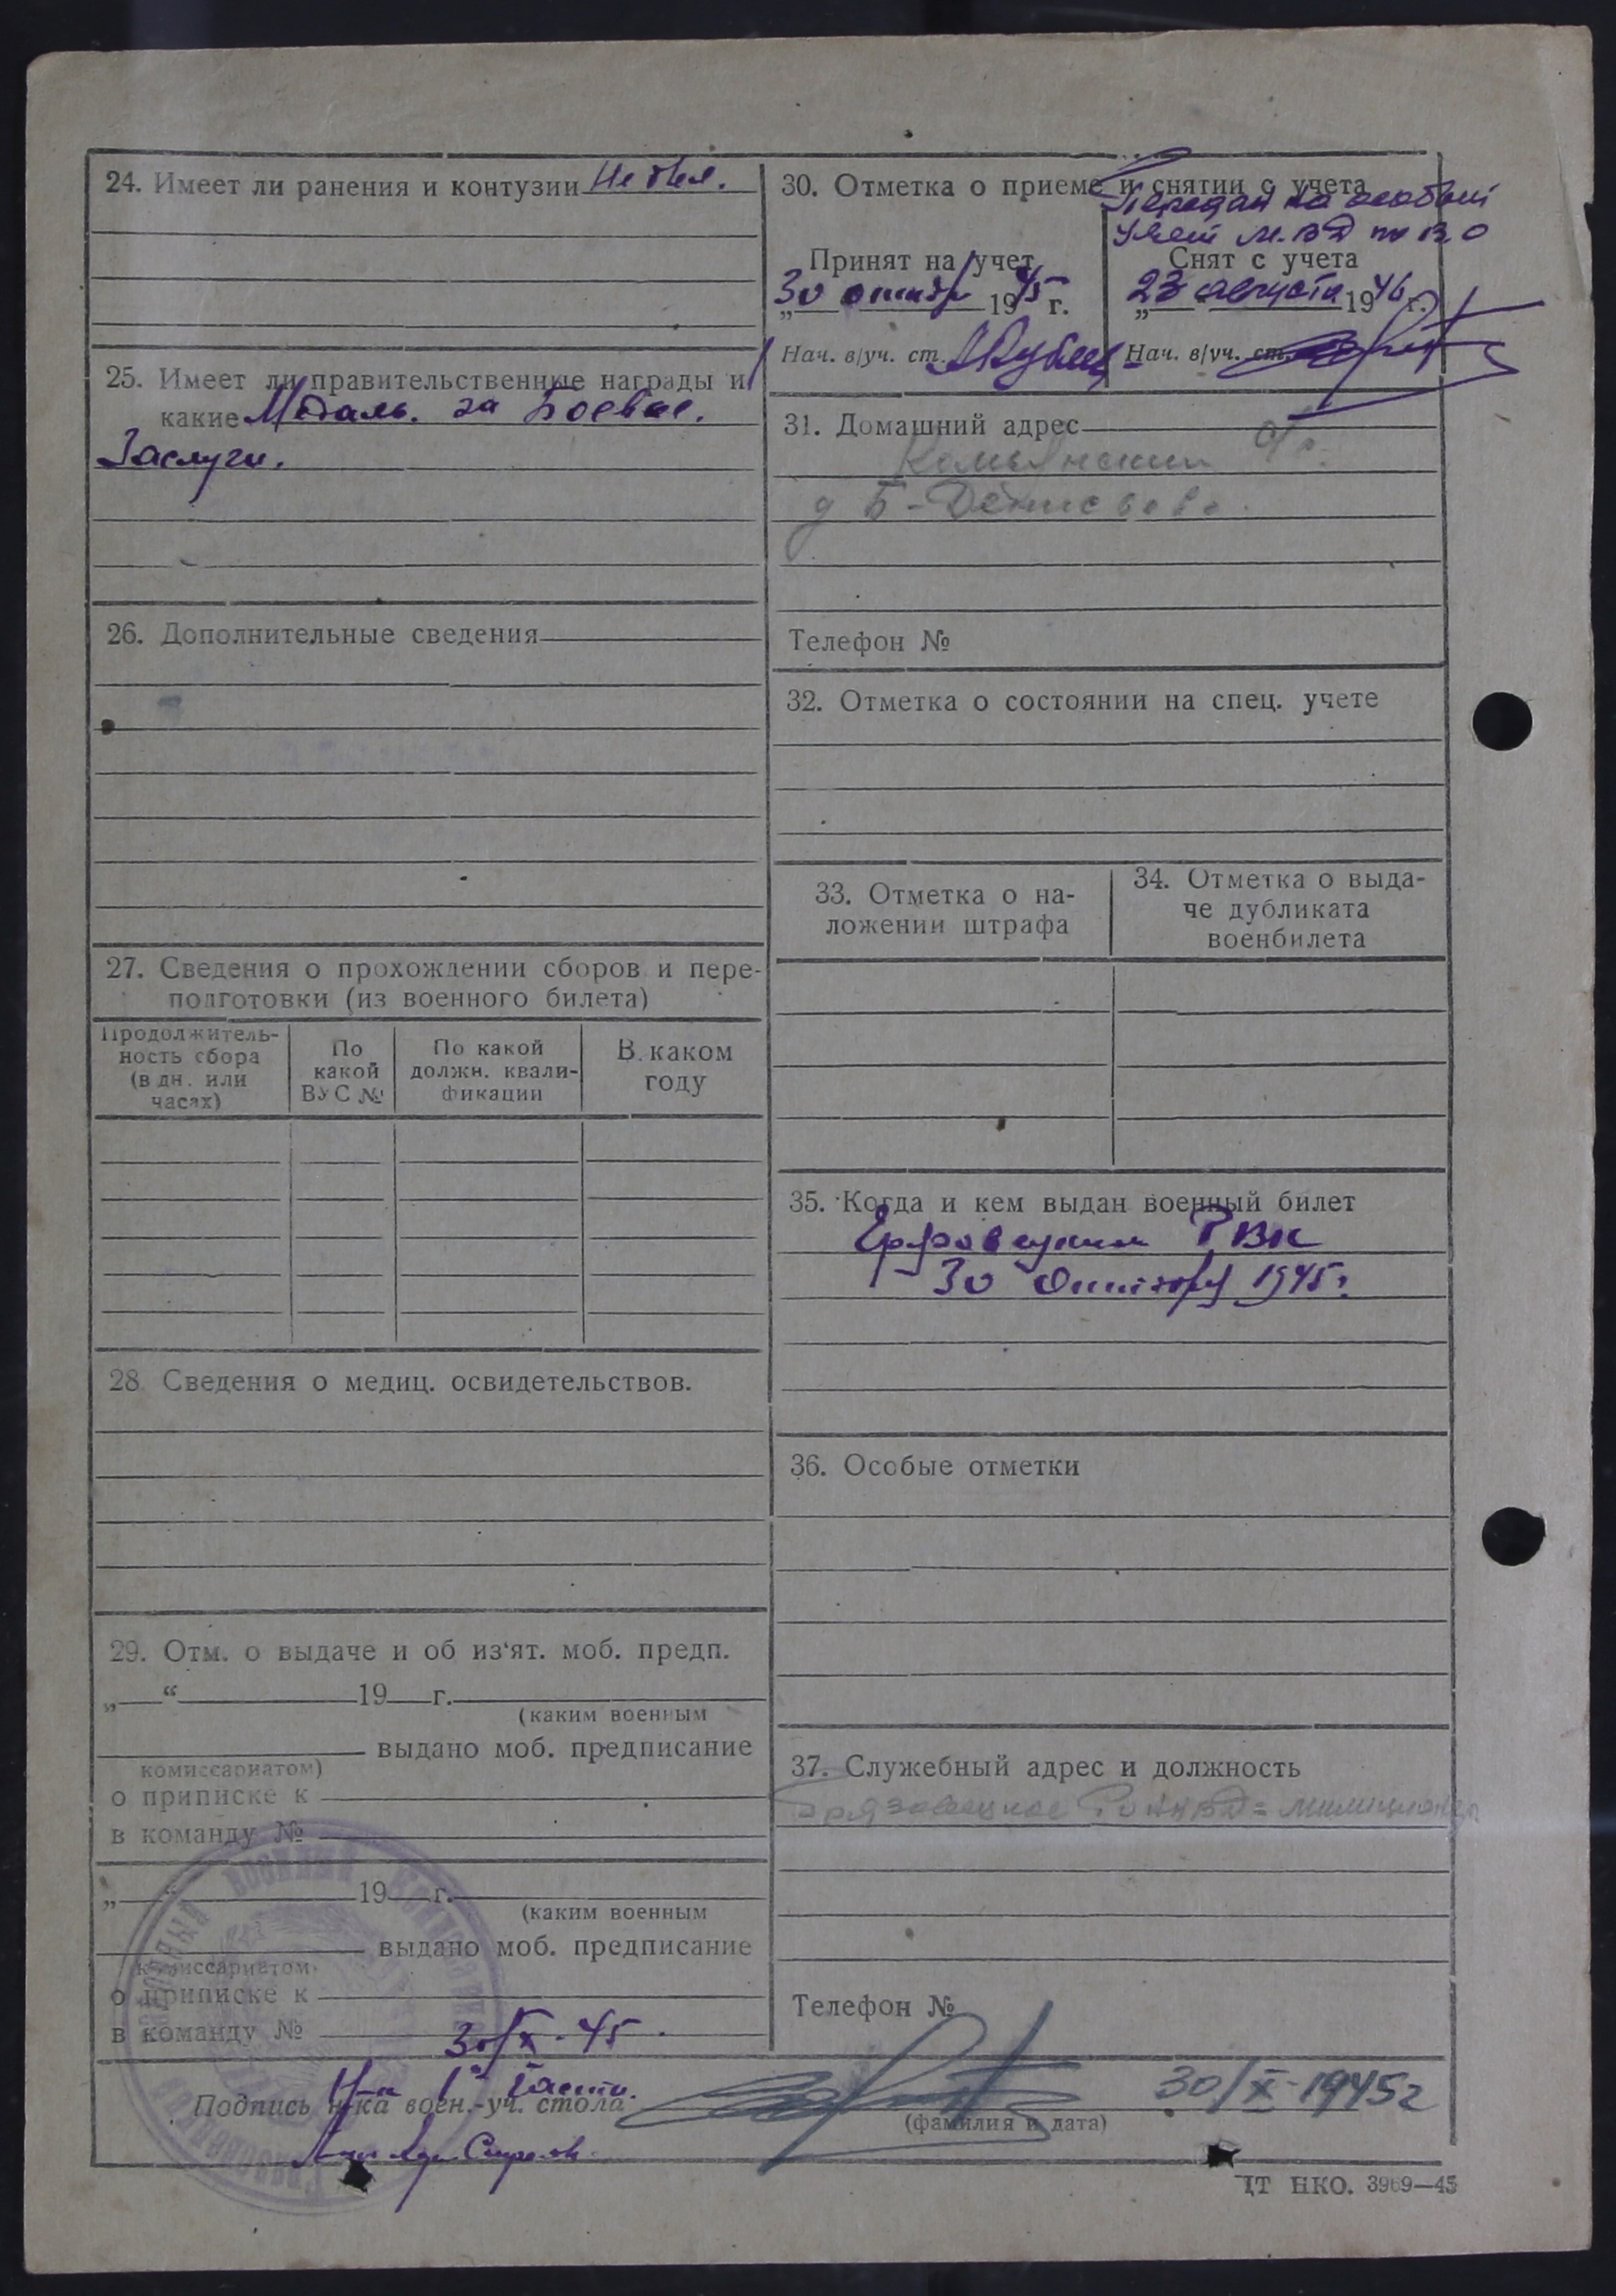 24. Имеет ли ранения и контузии Не был.
25. Имеет ли правительственные награды и
какие Медаль. за Боевые.
Заслуги.
26. Дополнительные сведения
27. Сведения о прохождении сборов и пере-
подготовки (из военного билета)
Продолжитель-
ность сбора
(в дн. или
часах)
По
какой
ВУС №
По какой
должн. квали-
фикации
В каком
году
28. Сведения о медиц. освидетельствов.
29. Отм. о выдаче и об из'ят. моб. предп.
„ “ 19 г.
(каким военным
выдано моб. предписание
комиссариатом)
о приписке к
в команду №
„ “ 19 г.
(каким военным
выдано моб. предписание
комиссариатом)
о приписке к
в команду №
30/X-45.
30. Отметка о приеме и снятии с учета
Передан на особый
учет М.ВД по В.О
Принят на учет
30 октябр 1945 г.
Нач. в/уч. ст.
Снят с учета
„23 августа 1946 г.
Нач. в/уч. ст.
31. Домашний адрес
д Б-Денисьево.
Телефон №
32. Отметка о состоянии на спец. учете
33. Отметка о на-
ложении штрафа
34. Отметка о выда-
че дубликата
военбилета
35. Когда и кем выдан военный билет
РВК
30 Октября 1945г.
36. Особые отметки
37. Служебный адрес и должность
Грязовецкое РОНКВД = милиционер
Телефон №
Н-к 1й части.
Подпись н-ка воен.-уч. стола
30/X-1945г
(фамилия и дата)
ЦТ НКО. 3969—45